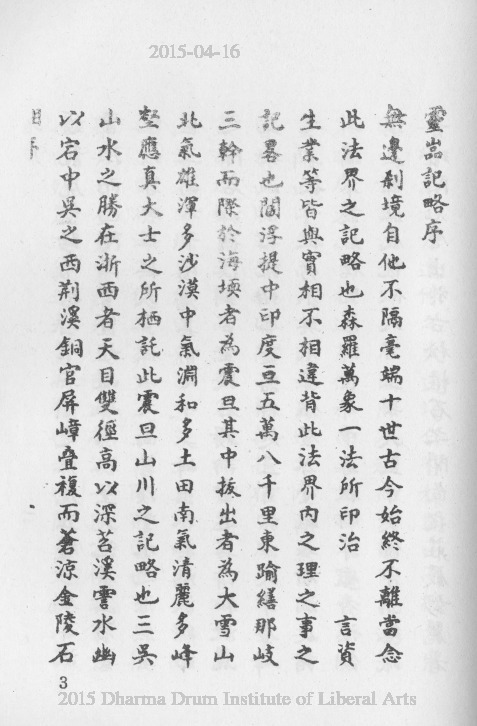 2015-04-16
靈嵒記略序
無邊剎境自他不隔毫端十世古今始終不離當念
此法界之記略也森羅萬象一法所印治 言資
生業等皆與實相不相違背此法界內之理之事之
記畧也閻浮提中印度亘五萬八千里東踰繕那岐
三幹而際於海壖者為震旦其中拔出者為大雪山
北氣雄渾多沙漠中氣淵和多土田南氣清麗多峰
壑應真大士之所栖託此震旦山川之記略也三吳
山水之勝在浙西者天目雙徑高以深苕溪霅水幽
以宕中吳之西荆溪銅官屏嶂疊複而蒼涼金陵石
3
2015 Dharma Drum Institute of Liberal Arts